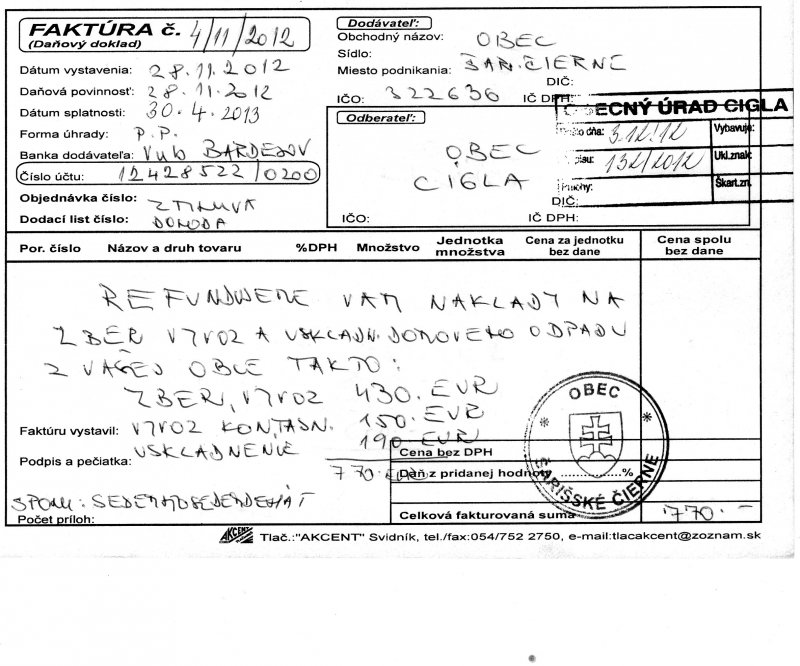 FAKTÚRA č. 4/11/2012
(Daňový doklad)
Dátum vystavenia: 28.11.2012
Daňová povinnosť: 28.11.2012
Dátum splatnosti: 30.4.2013
Forma úhrady: P.P.
Banka dodávateľa: VUB BARDEJOV
Číslo účtu: 12428522/0200
Objednávka číslo: ZMLUVA
Dodací list číslo: DOHODA
Dodávateľ:
Obchodný názov: OBEC
Sídlo:
Miesto podnikania: ŠAR. ČIERNE
DIČ:
IČO: 322636 IČ DPH:
Odberateľ:
OBEC
CIGLA
DIČ:
IČO: IČ DPH:
OBECNÝ ÚRAD CIGLA
dňa: 3.12.12 Vybavuje:
132/2012 Ukl.znak:
Škart.zn.
Por. číslo Názov a druh tovaru %DPH Množstvo Jednotka množstva Cena za jednotku bez dane Cena spolu bez dane
REFUNDUJEME VAM NAKLADY NA
ZBER VÝVOZ A USKLADN. DOMOVEHO ODPADU
Z VAŠEJ OBCE TAKTO:
ZBER, VÝVOZ 430. EUR
Faktúru vystavil: VÝVOZ KONTAJN. 150. EUR
USKLADNENIE 190. EUR
Podpis a pečiatka: 770. EUR
SPOLU: SEDEMSTOSEDEMDESIAT
Počet príloh:
Cena bez DPH
Daň z pridanej hodnoty ..............%
Celková fakturovaná suma 770.-
OBEC
ŠARIŠSKÉ ČIERNE
AKCENT Tlač.:"AKCENT" Svidník, tel./fax:054/752 2750, e-mail:tlacakcent@zoznam.sk